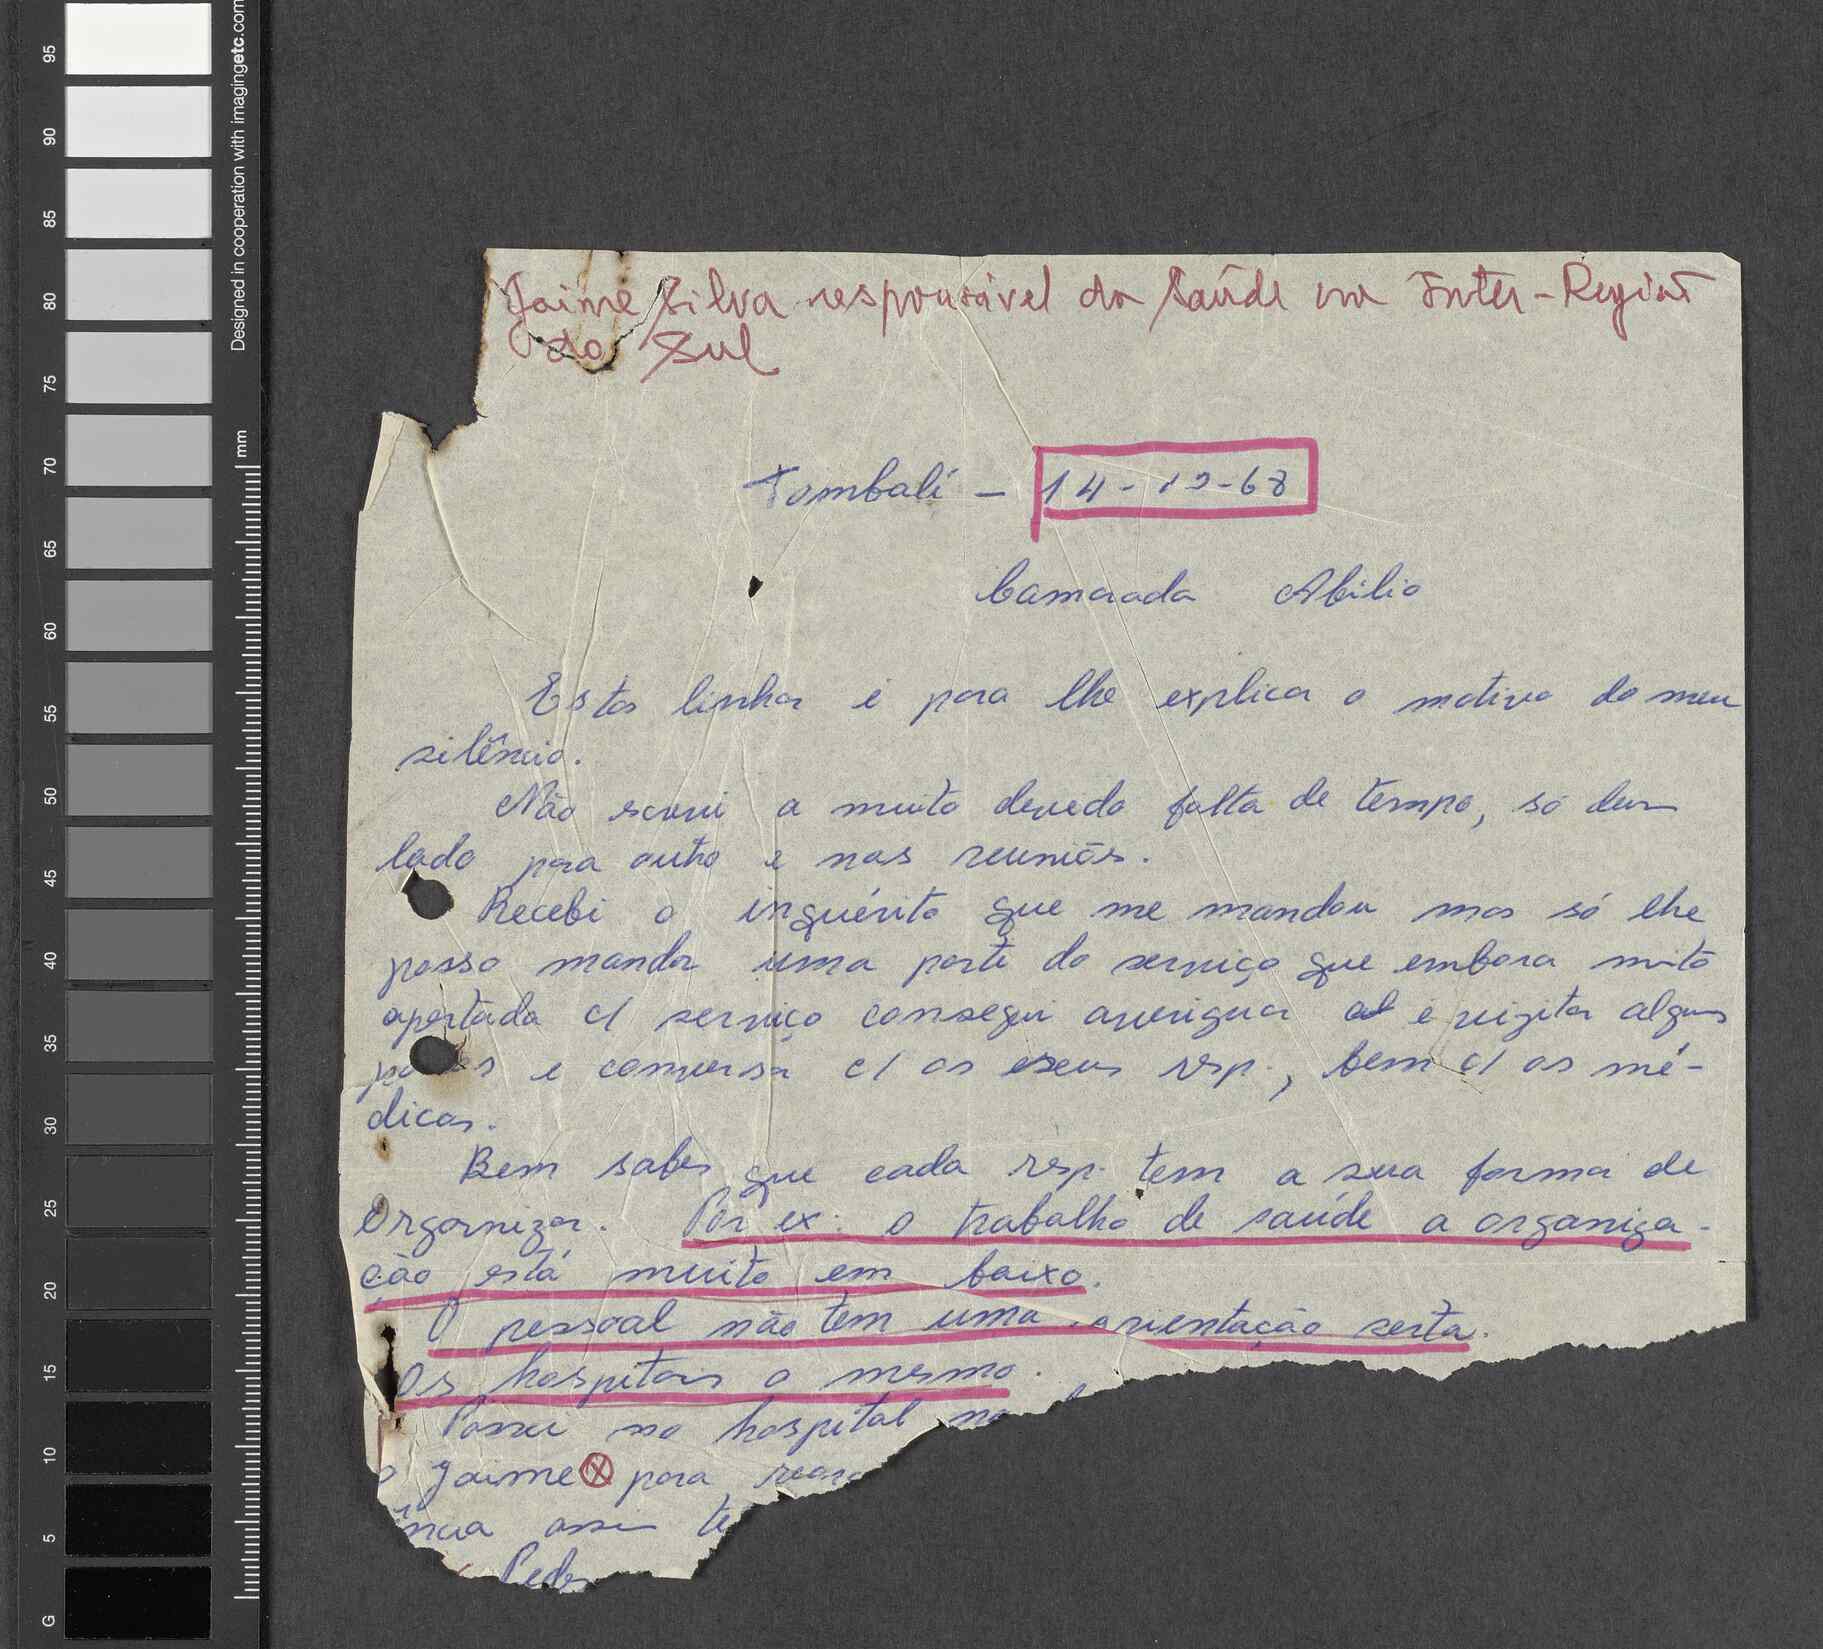 Jaime Silva responsável da Saúde na Inter-Região
do Sul
Tombali - 14-12-68
Camarada Abilio
Estas linhas é para lhe explicar o motivo do meu
silêncio.
Não screvi a muito devido falta de tempo, só dum
lado para outro e nas reuniõs.
Recebi o inquérito que me mandou mas só lhe
posso mandar uma parte do serviço que embora muito
apertada c/ serviço consegui averiguar e vizitar alguns
e conversar c/ os seus resp., bem c/ os mé-
dicos.
Bem sabes que cada resp. tem a sua forma de
Organizar. Por ex: o trabalho de saúde a organiza-
ção está muito em baixo.
O pessoal não tem uma orientação serta.
Os hospitais o mesmo.
Passei no hospital
o Jaime para
assim